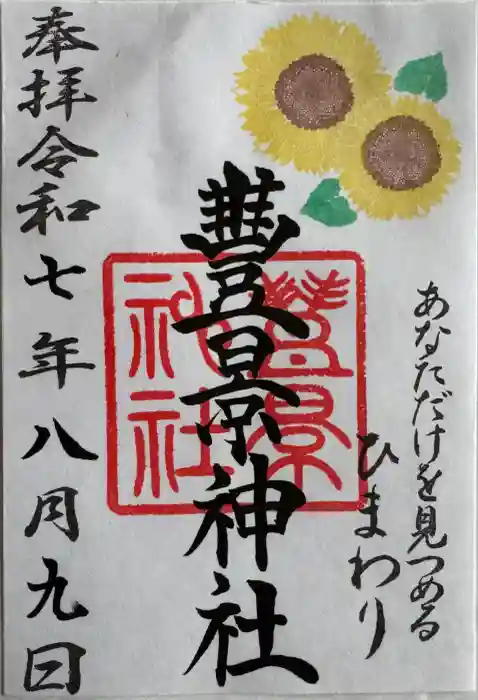 あなただけを見つめる
ひまわり
豐景神社
豐景神社
奉拝令和七年八月九日